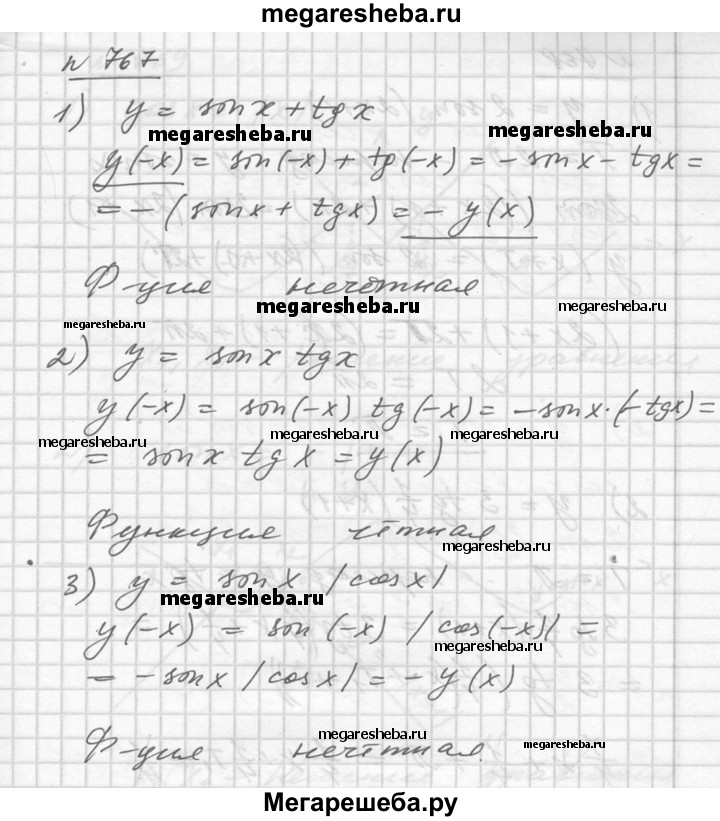 megaresheba.ru
n 767
1) y = sin x + tg x
megaresheba.ru megaresheba.ru
y(-x) = sin(-x) + tg(-x) = - sin x - tg x =
= - (sin x + tg x) = - y(x)
Ф-ция нечётная
megaresheba.ru megaresheba.ru
megaresheba.ru
2) y = sin x tg x
y(-x) = sin(-x) tg(-x) = - sin x · (- tg x) =
megaresheba.ru megaresheba.ru megaresheba.ru
= sin x tg x = y(x)
Функция чётная
megaresheba.ru
3) y = sin x |cos x|
megaresheba.ru
y(-x) = sin (-x) |cos(-x)| =
megaresheba.ru
= - sin x |cos x| = - y(x)
megaresheba.ru
Ф-ция нечётная.
megaresheba.ru
Мегарешеба.ру